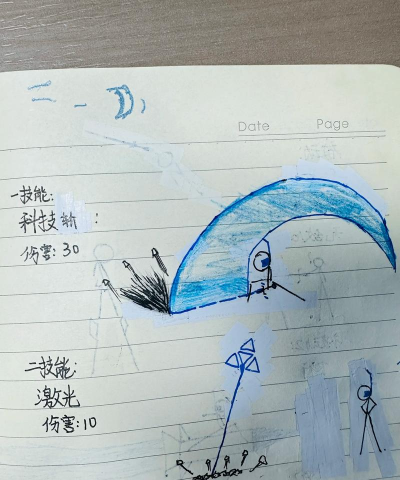 Date Page
一技能:
科技斩:
伤害:30
二技能:
激光
伤害:10